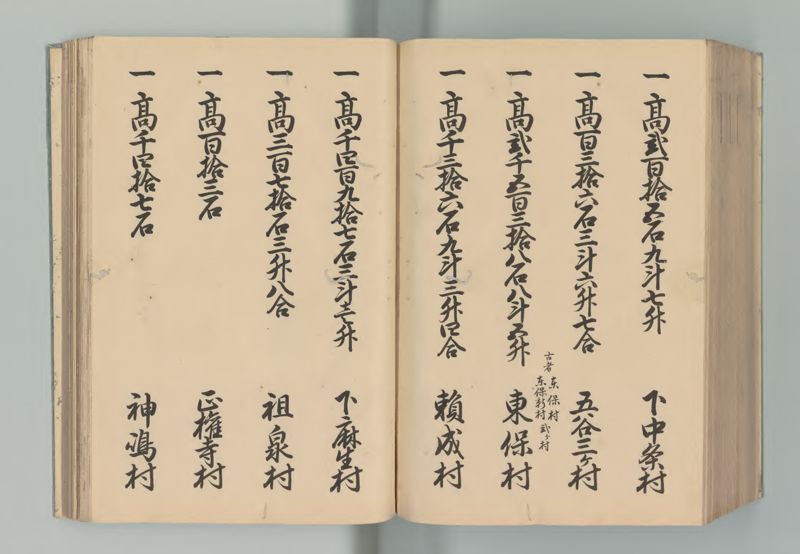 一 高弐百拾五石九斗七升 下中条村
一 高百三拾六石三斗六升七合 五谷三ケ村
古者 東保村 東保新村 弐ケ村
一 高弐千五百三拾八石八斗五升 東保村
一 高千三拾六石九斗三升四合 頼成村
一 高千四百九拾七石三斗壱升 下麻生村
一 高三百七拾石三升八合 祖泉村
一 高百拾三石 正権寺村
一 高千四拾七石 神嶋村